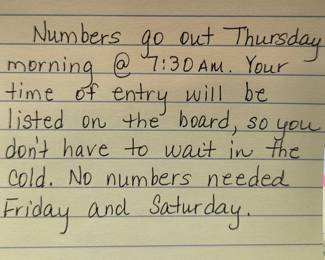 Numbers go out Thursday
morning @ 7:30 AM. Your
time of entry will be
listed on the board, so you
don't have to wait in the
cold. No numbers needed
Friday and Saturday.